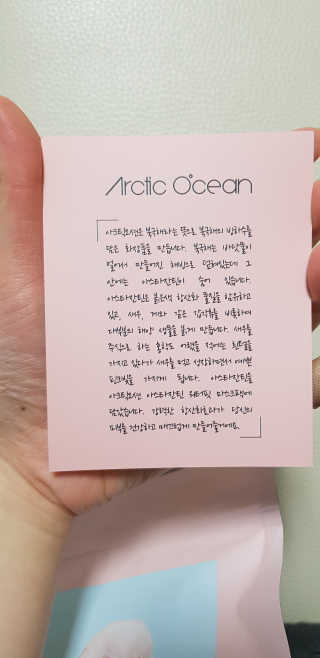 Arctic Ocean
아크틱오션은 북극해라는 뜻으로 북극해의 빙하수를
담은 화장품을 만듭니다. 북극해는 바닷물이
얼어서 만들어진 해빙으로 덮여있는데 그
안에는 아스타잔틴이 숨어 있습니다.
아스타잔틴은 붉은색 항산화 물질을 함유하고
있고, 새우, 게와 같은 갑각류를 비롯하여
대부분의 해양 생물을 붉게 만듭니다. 새우를
주식으로 하는 홍학도 어렸을 적에는 흰털을
가지고 있다가 새우를 먹고 성장하면서 예쁜
핑크빛을 가지게 됩니다. 아스타잔틴을
아크틱오션 아스타잔틴 워터핏 마스크팩에
담았습니다. 강력한 항산화효과가 당신의
피부를 건강하고 매끈하게 만들어줄거에요.